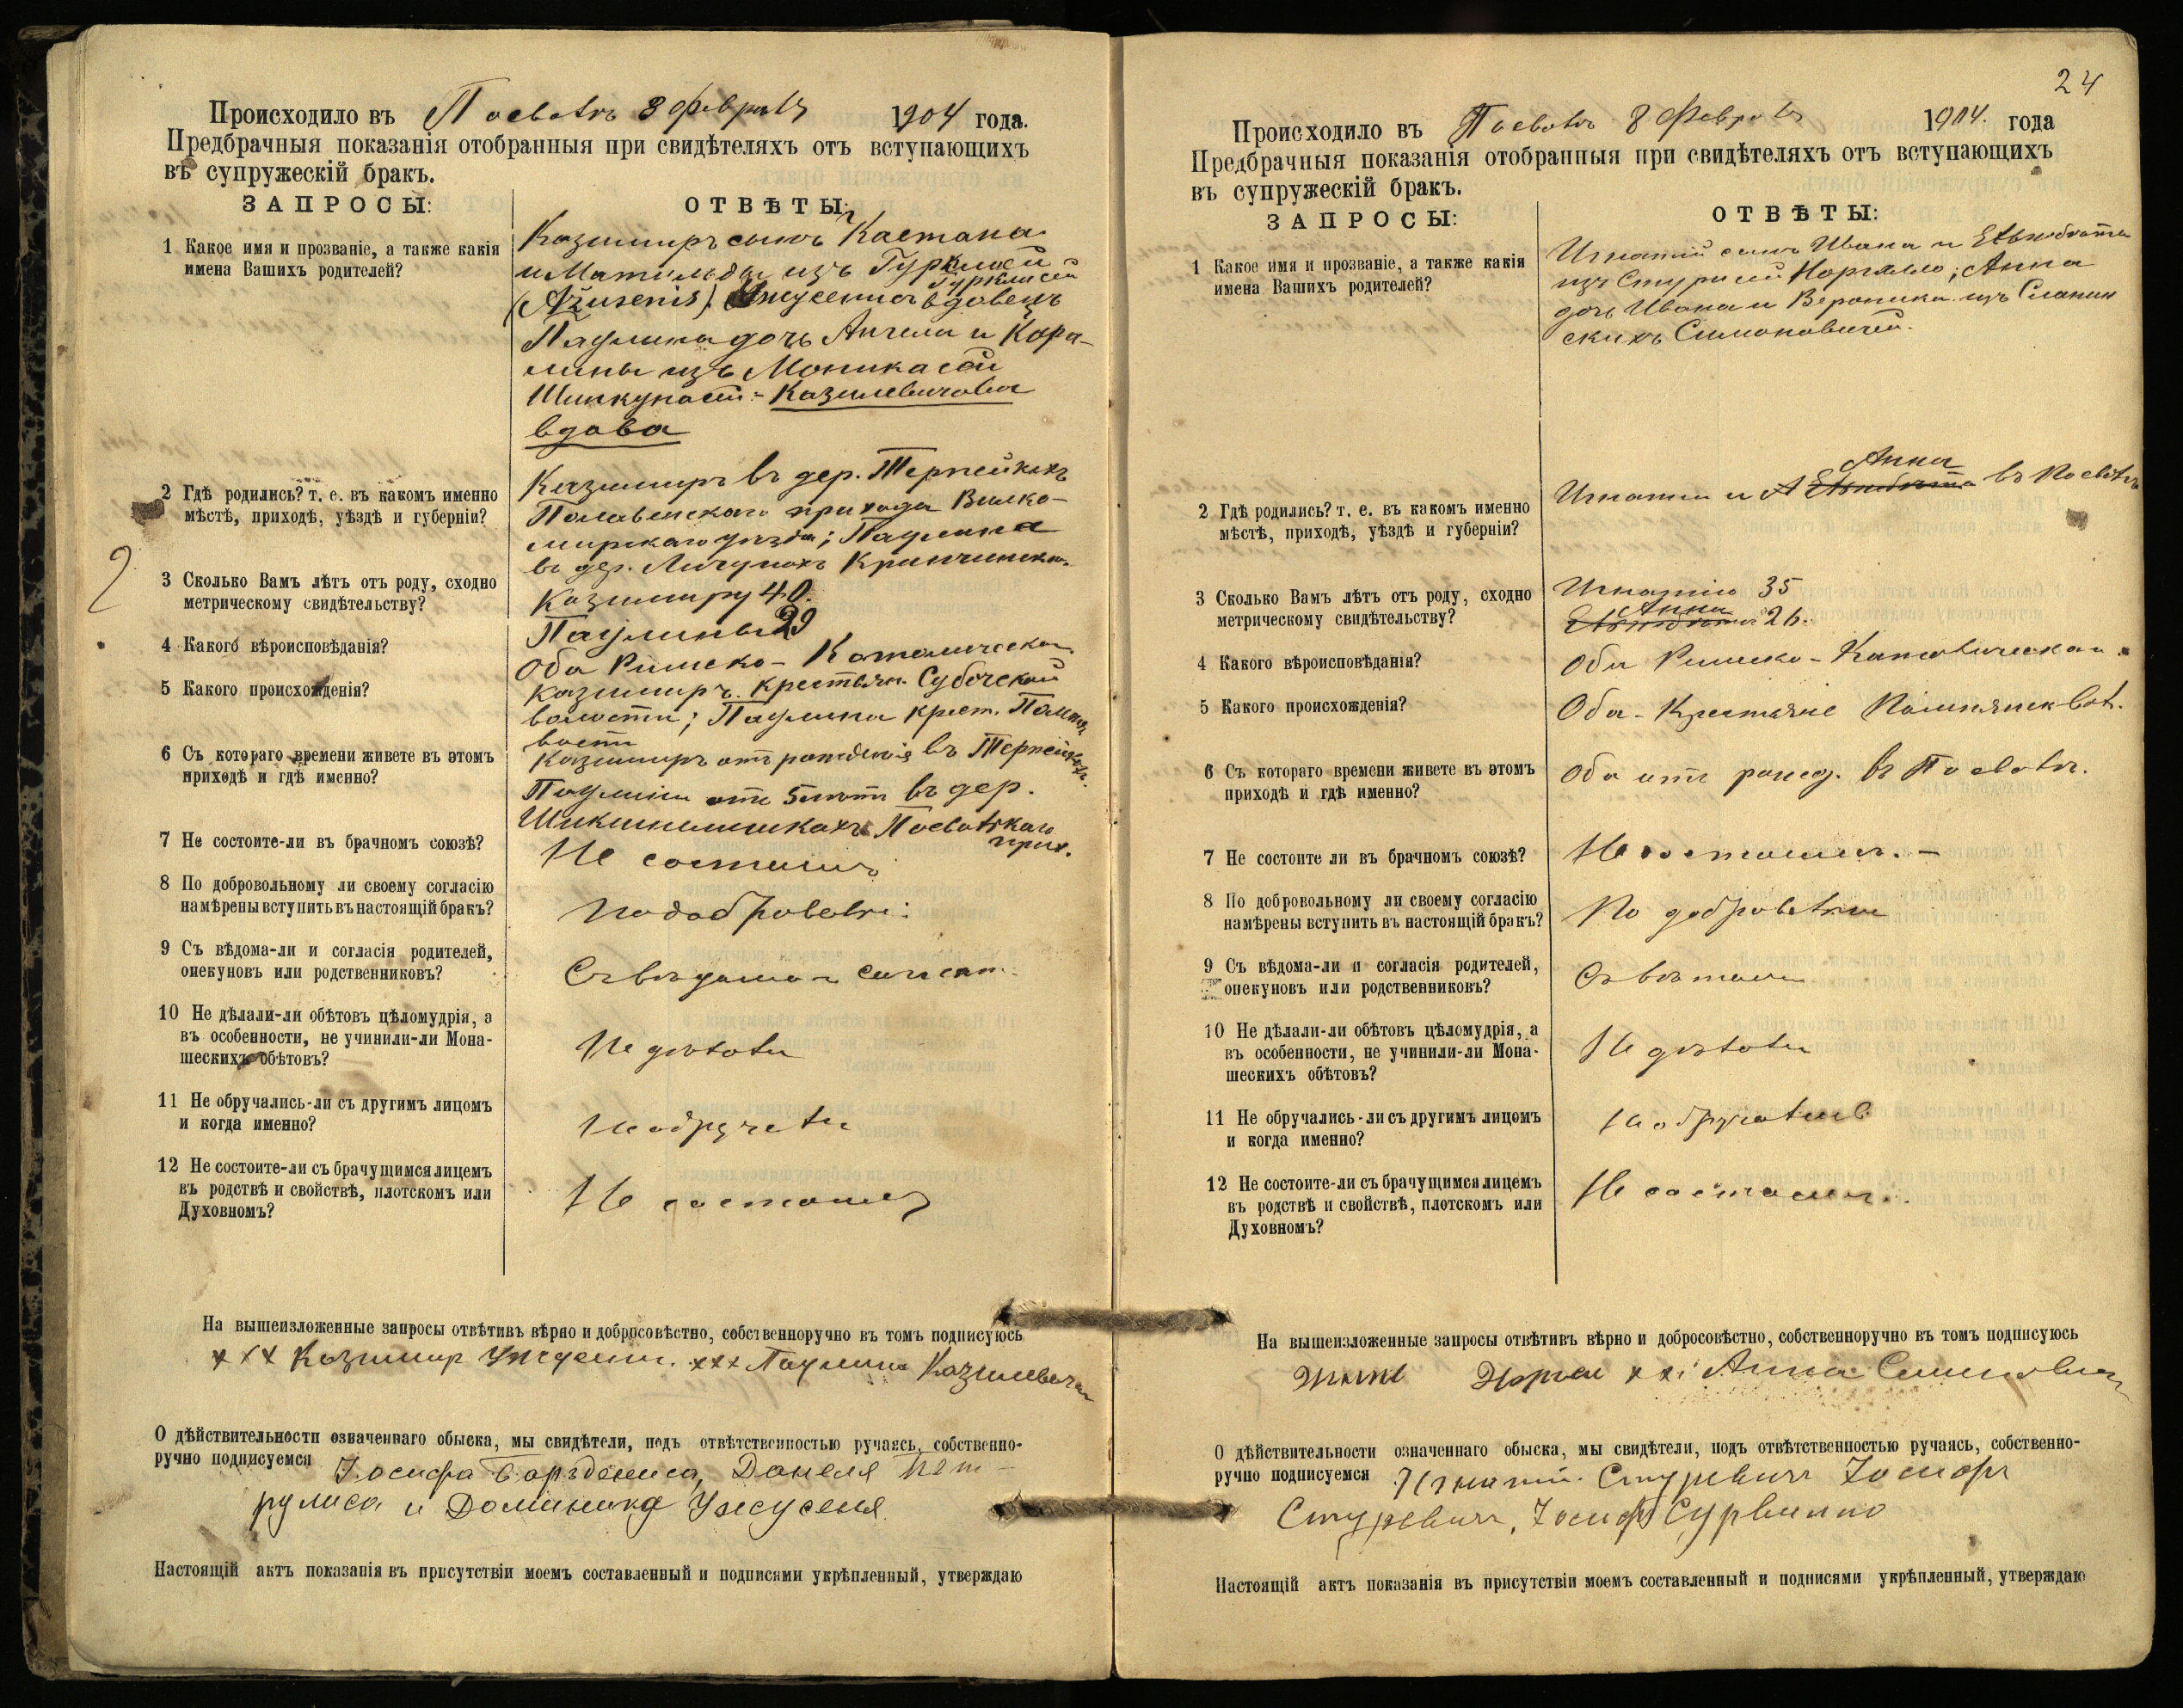 Происходило въ Поеволь 8 февраля 1904 года.
Предбрачныя показанія отобранныя при свидѣтеляхъ отъ вступающихъ
въ супружескій бракъ.
ЗАПРОСЫ:
ОТВѢТЫ:
1 Какое имя и прозваніе, а также какія
имена Вашихъ родителей?
Казимиръ сынъ Каетана
и Матильды изъ
(Ažusenis) вдовецъ
Паулина дочь Ангела и Каро-
лины изъ
Казилевичова
вдова
2 Гдѣ родились? т. е. въ какомъ именно
мѣстѣ, приходѣ, уѣздѣ и губерніи?
Казимиръ въ дер. Терпейкахъ
прихода Вилко-
мирскаго уѣзда; Паулина
въ дер.
3 Сколько Вамъ лѣтъ отъ роду, сходно
метрическому свидѣтельству?
Казимиру 40.
Паулины 29
4 Какого вѣроисповѣданія?
Оба Римско-Католическаго
5 Какого происхожденія?
Казимиръ. крестьян. Субочской
волости; Паулина крест.
6 Съ котораго времени живете въ этомъ
приходѣ и гдѣ именно?
Казимиръ отъ рожденія въ Терпейкахъ.
Паулина отъ 5 лѣтъ въ дер.
прих.
7 Не состоите-ли въ брачномъ союзѣ?
Не состоимъ
8 По добровольному ли своему согласію
намѣрены вступить въ настоящій бракъ?
9 Съ вѣдома-ли и согласія родителей,
опекуновъ или родственниковъ?
10 Не дѣлали-ли обѣтовъ цѣломудрія, а
въ особенности, не учинили-ли Мона-
шескихъ обѣтовъ?
Не дѣлали
11 Не обручались-ли съ другимъ лицомъ
и когда именно?
12 Не состоите-ли съ брачущимся лицемъ
въ родствѣ и свойствѣ, плотскомъ или
Духовномъ?
Не состоимъ
На вышеизложенные запросы отвѣтивъ вѣрно и добросовѣстно, собственноручно въ томъ подписуюсь
xxx Казимир xxx Паулина
О дѣйствительности означеннаго обыска, мы свидѣтели, подъ отвѣтственностью ручаясь, собственно-
ручно подписуемся
и Доминика
Настоящій актъ показанія въ присутствіи моемъ составленный и подписями укрѣпленный, утверждаю
24
Происходило въ Поеволь 8 Февраля 1904. года
Предбрачныя показанія отобранныя при свидѣтеляхъ отъ вступающихъ
въ супружескій бракъ.
ЗАПРОСЫ:
ОТВѢТЫ:
1 Какое имя и прозваніе, а также какія
имена Вашихъ родителей?
Игнатій сынъ Ивана и
изъ Анна
дочь Ивана и Вероники изъ
Симоновичей.
2 Гдѣ родились? т. е. въ какомъ именно
мѣстѣ, приходѣ, уѣздѣ и губерніи?
Анна
Игнатій и въ Поеволь
3 Сколько Вамъ лѣтъ отъ роду, сходно
метрическому свидѣтельству?
Игнатію 35
Анна
26.
4 Какого вѣроисповѣданія?
Оба Римско-Католическаго
5 Какого происхожденія?
Оба Крестьяне
6 Съ котораго времени живете въ этомъ
приходѣ и гдѣ именно?
Оба отъ рожд. въ Поеволь.
7 Не состоите ли въ брачномъ союзѣ?
Не состоимъ. —
8 По добровольному ли своему согласію
намѣрены вступить въ настоящій бракъ?
9 Съ вѣдома-ли и согласія родителей,
опекуновъ или родственниковъ?
10 Не дѣлали-ли обѣтовъ цѣломудрія, а
въ особенности, не учинили-ли Мона-
шескихъ обѣтовъ?
Не дѣлали
11 Не обручались-ли съ другимъ лицомъ
и когда именно?
12 Не состоите-ли съ брачущимся лицемъ
въ родствѣ и свойствѣ, плотскомъ или
Духовномъ?
Не состоимъ.
На вышеизложенные запросы отвѣтивъ вѣрно и добросовѣстно, собственноручно въ томъ подписуюсь
Анна
О дѣйствительности означеннаго обыска, мы свидѣтели, подъ отвѣтственностью ручаясь, собственно-
ручно подписуемся Игнатій Стуревичъ Іосифъ
Стуревичъ, Іосифъ Сурвилло
Настоящій актъ показанія въ присутствіи моемъ составленный и подписями укрѣпленный, утверждаю